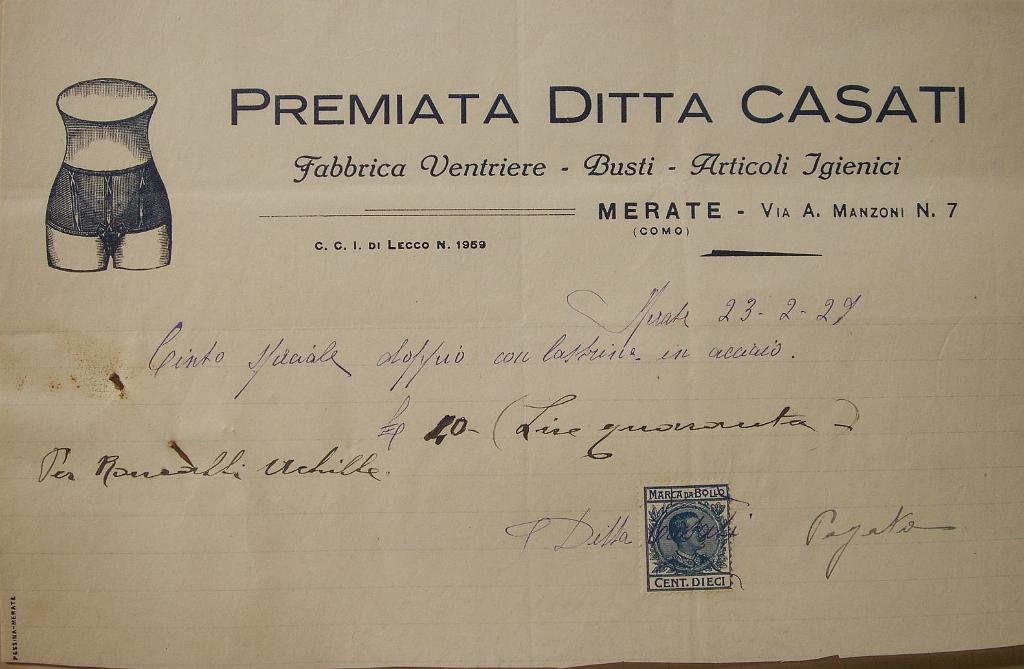 PREMIATA DITTA CASATI
Fabbrica Ventriere - Busti - Articoli Igienici
MERATE - VIA A. MANZONI N. 7
(COMO)
C. C. I. DI LECCO N. 1959
Merate 23-2-29
Cinto speciale doppio con lastrina in acciaio.
£ 40- (Lire quaranta)
Per Roncalli Achille.
MARCA DA BOLLO
Ditta Casati
Pagato
CENT. DIECI
PESSINA-MERATE